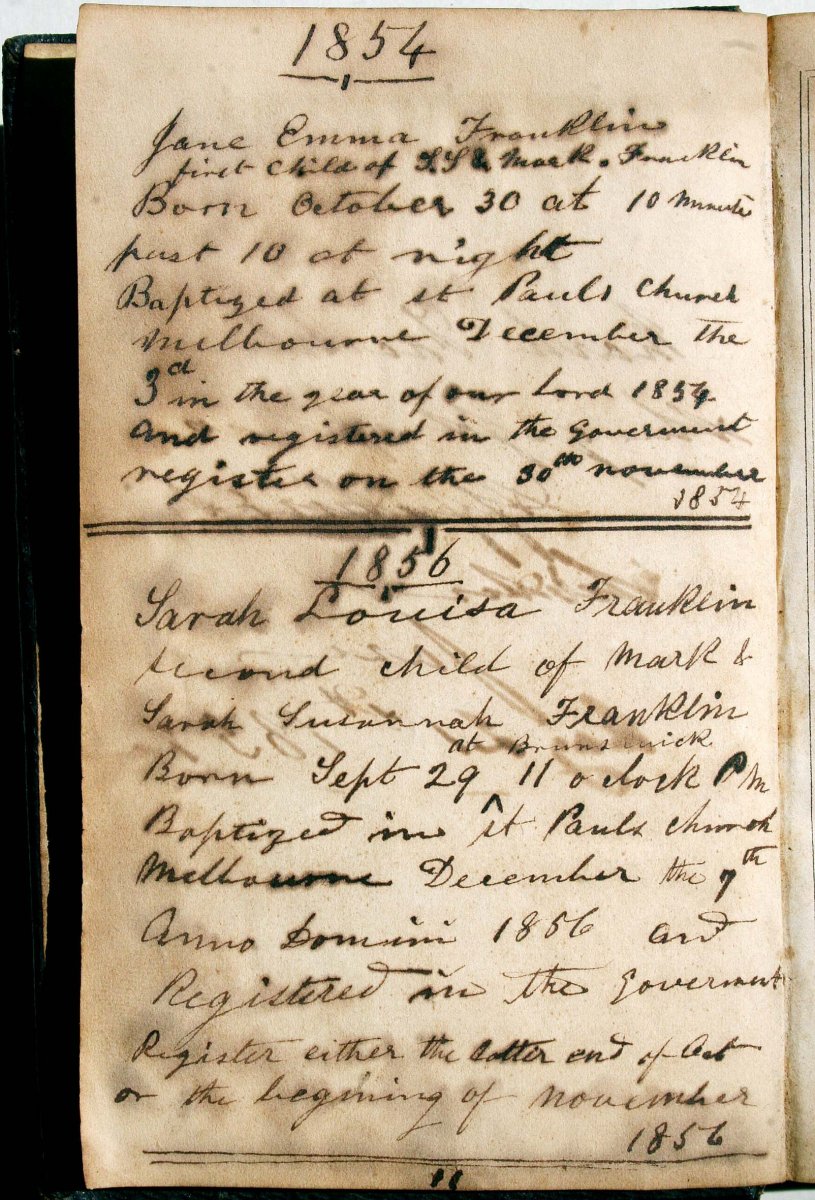 1854
Jane Emma Franklin
first child of S.S & Mark. Franklin
Born October 30 at 10 Minute
past 10 at night
Baptized at st Pauls Church
Melbourne December the
3d in the year of our Lord 1854
and registered in the Goverment
register on the 30th november
1854
1856
Sarah Louisa Franklin
second child of Mark &
Sarah Susannah Franklin
at Brunswick
Born Sept 29 ^ 11 o clock P M
Baptized in st Pauls church
Melbourne December the 7th
Anno Domini 1856 and
Registered in the Goverment
Register either the latter end of Oct
or the begining of november
1856